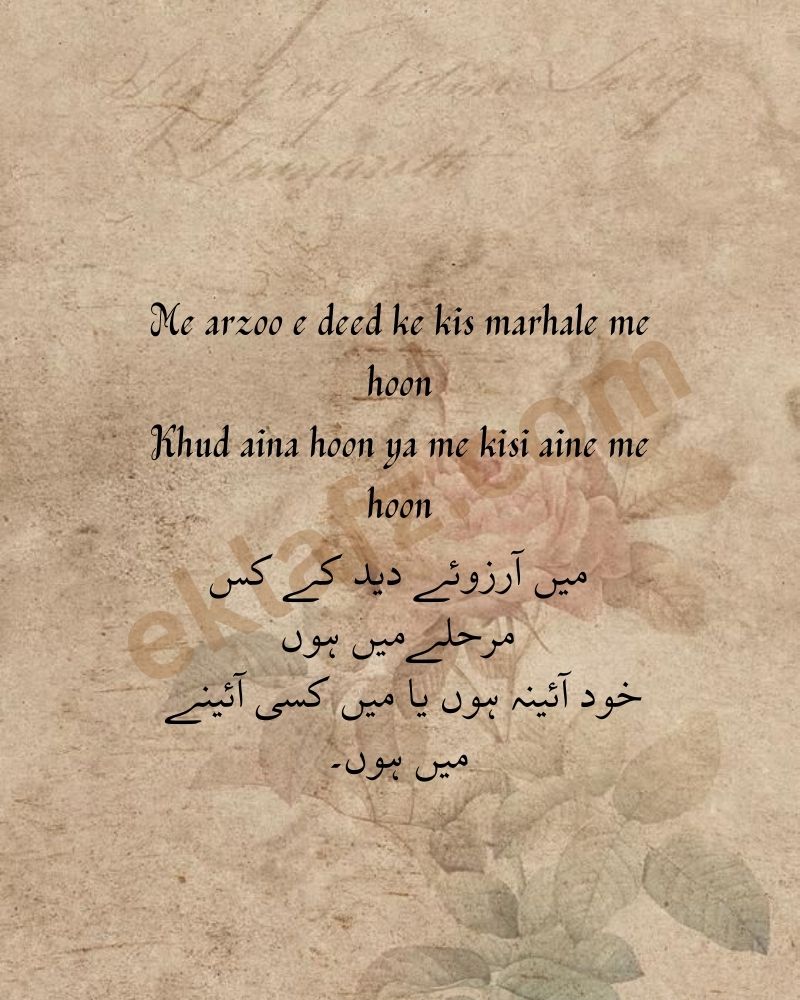 Me arzoo e deed ke kis marhale me
hoon
Khud aina hoon ya me kisi aine me
hoon
میں آرزوئے دید کے کس
مرحلےمیں ہوں
خود آئینہ ہوں یا میں کسی آئینے
میں ہوں۔
ektafz.com